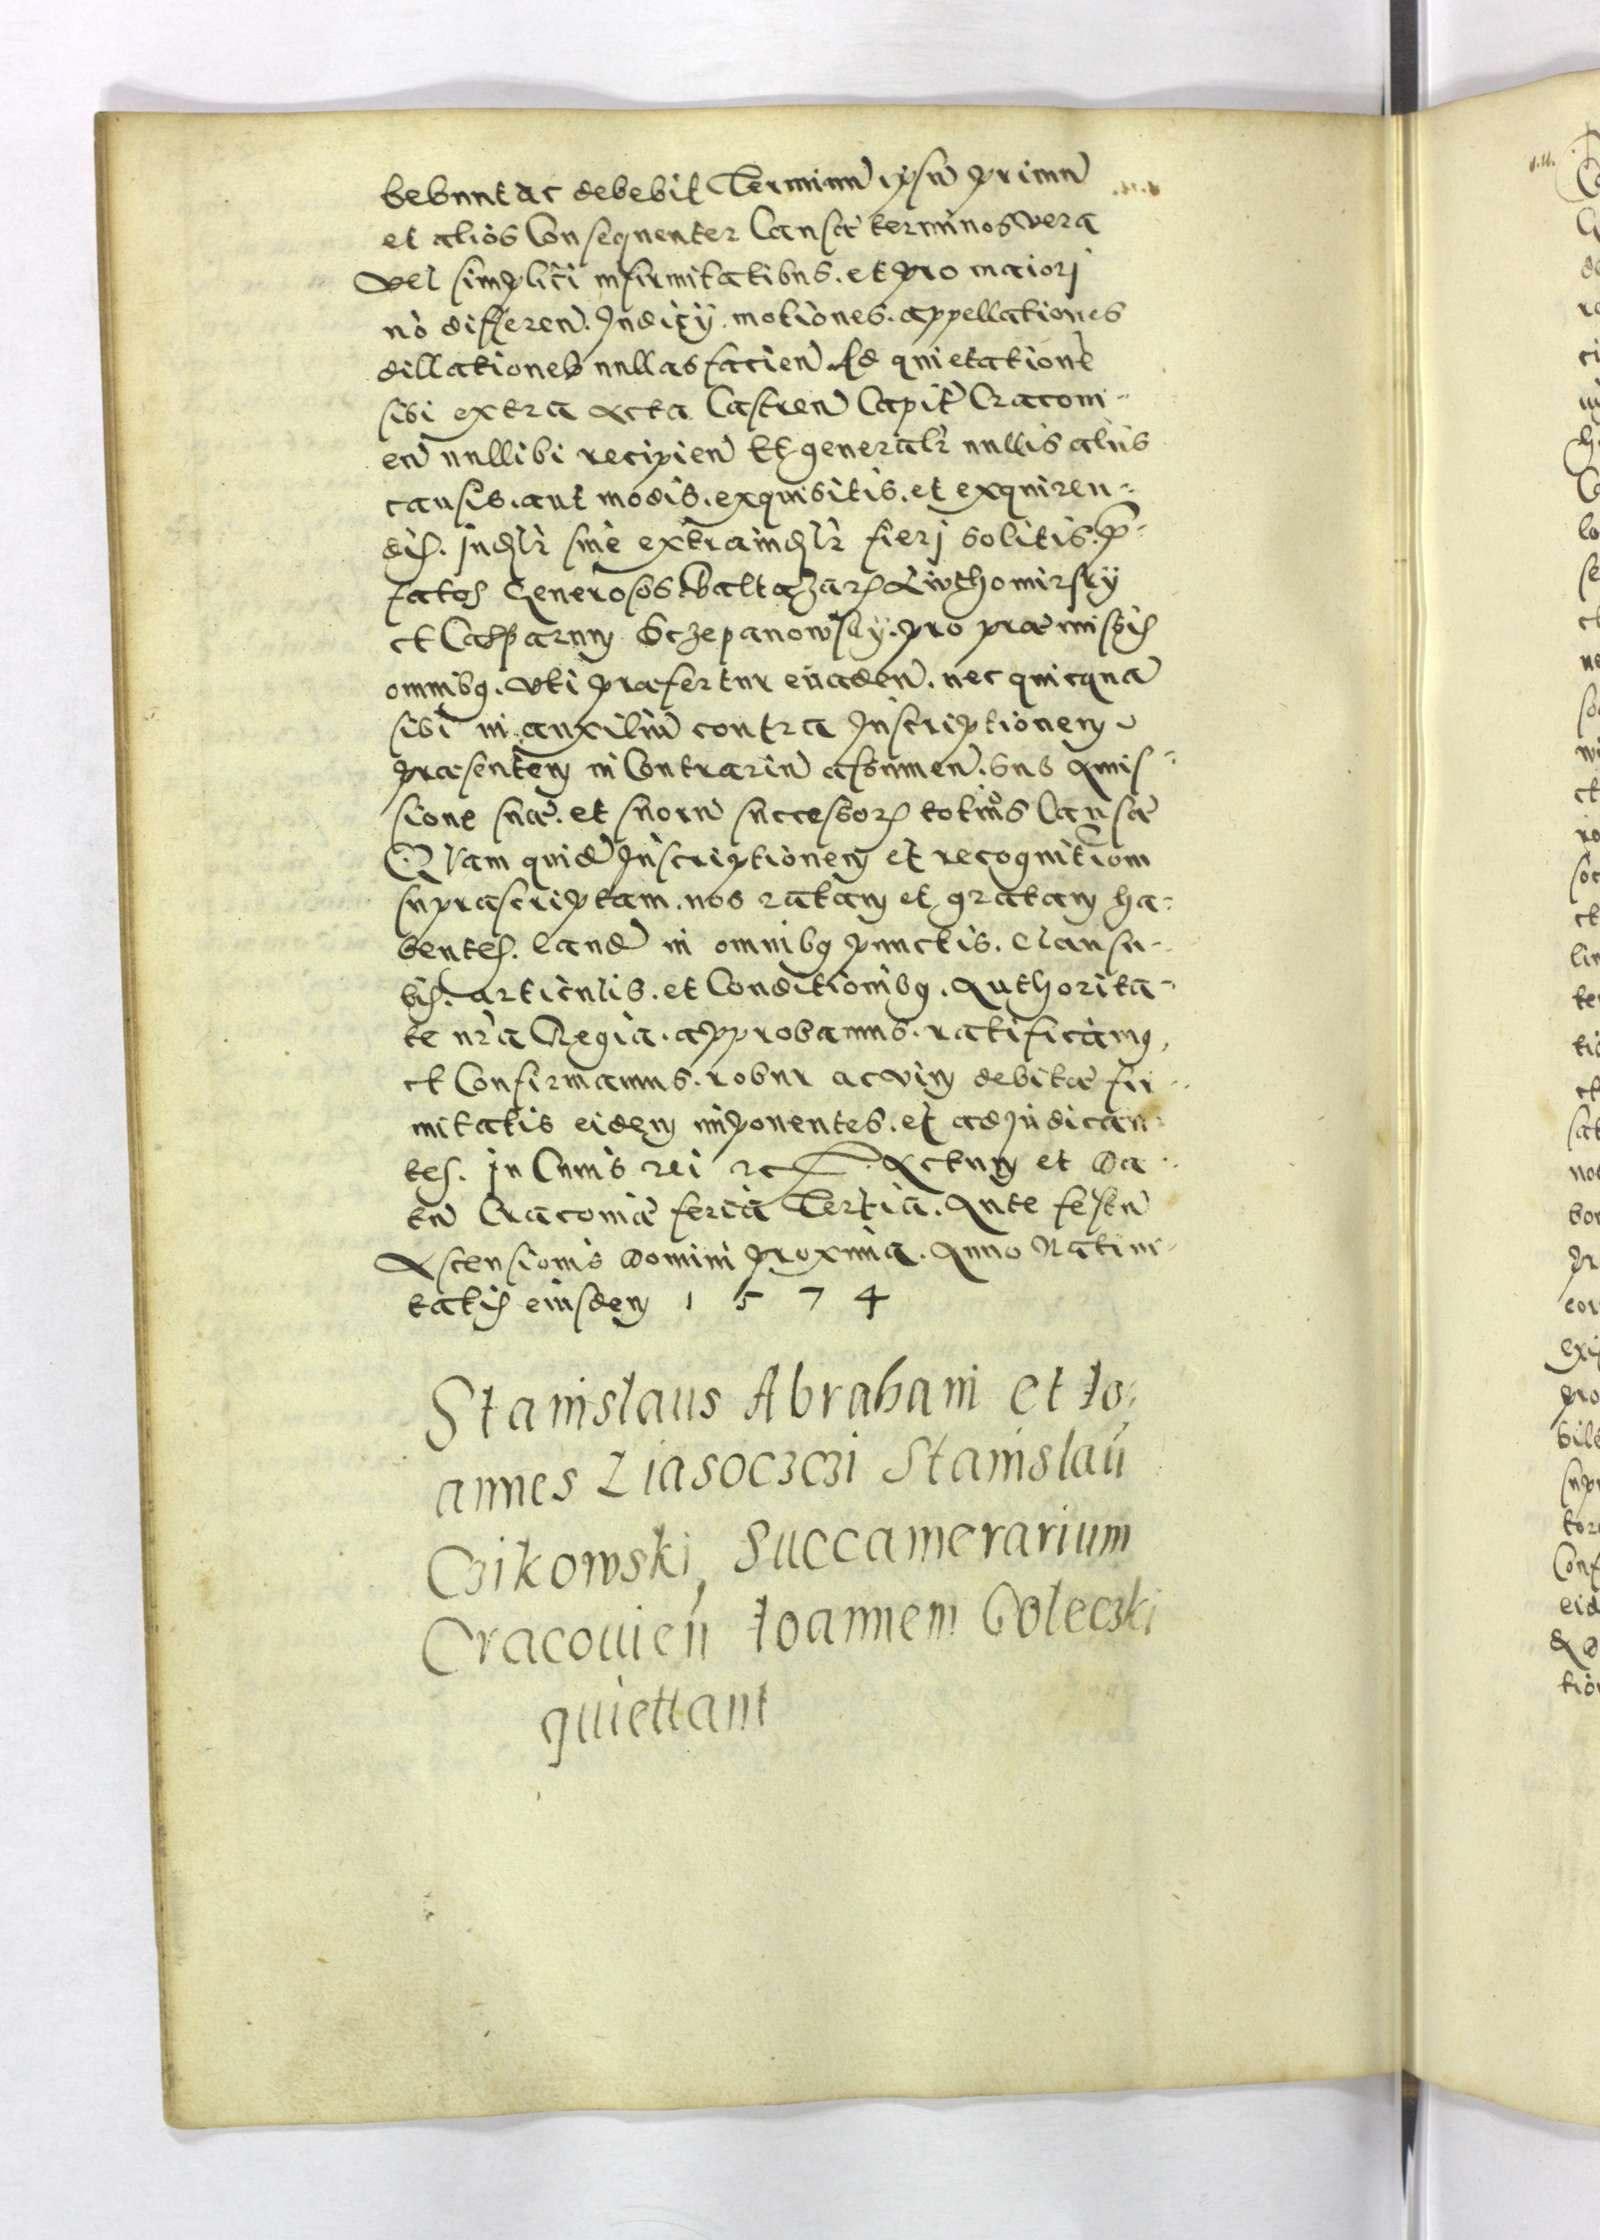 bebunt ac debebit Terminũ ipsũ primũ
et alios Consequenter Causæ terminos vera
vel simplici infirmitatibus. et pro maiorj
nõ differeñ. Judicÿ. motiones. appellationes
dillationes nullas facieñ. Ad quietationẽ
sibi extra acta Castreñ Capiť Cracoui-
eñ nullibi recipieñ Et generalr̃ nullis alijs
causis. aut modis. exquisitis. et exquiren-
dis. judlr̃ siue extraiudlr̃ fierj solitis. p̃-
fatos Generosos Baltazarem Liuthomirskÿ
et Casparum Sczepanowskÿ. pro præmissis
omnibus. vti præfertur euadeñ. nec quicquã
sibi in auxiliũ contra Inscriptionem
præsentem in Contrariũ assumeñ. sub Amis-
sione suæ. et suorũ successorum totius Causæ
Quam quidẽ Inscriptionem et recognitiom
suprascriptam. nos ratam et gratam ha-
bentes. eandẽ in omnibus punctis. clausu-
lis. articulis. et Conditionibus. Authorita-
te nr̃a Regia. approbamus. ratificamus,
et Confirmamus. robur ac vim debitæ fir-
mitatis eidem imponentes. et adjudican-
tes. in Cuius rei etc. Actum et Da-
tũ Cracouiæ feria Tertia. Ante festũ
Ascensionis Domini proxima. Anno Natiui-
tatis eiusdem 1 5 7 4
Stanislaus Abraham et Io-
annes Liasoczczi Stanislaũ
Czikowski, Succamerarium
Cracouieñ Ioannem Goleczki
quiettant